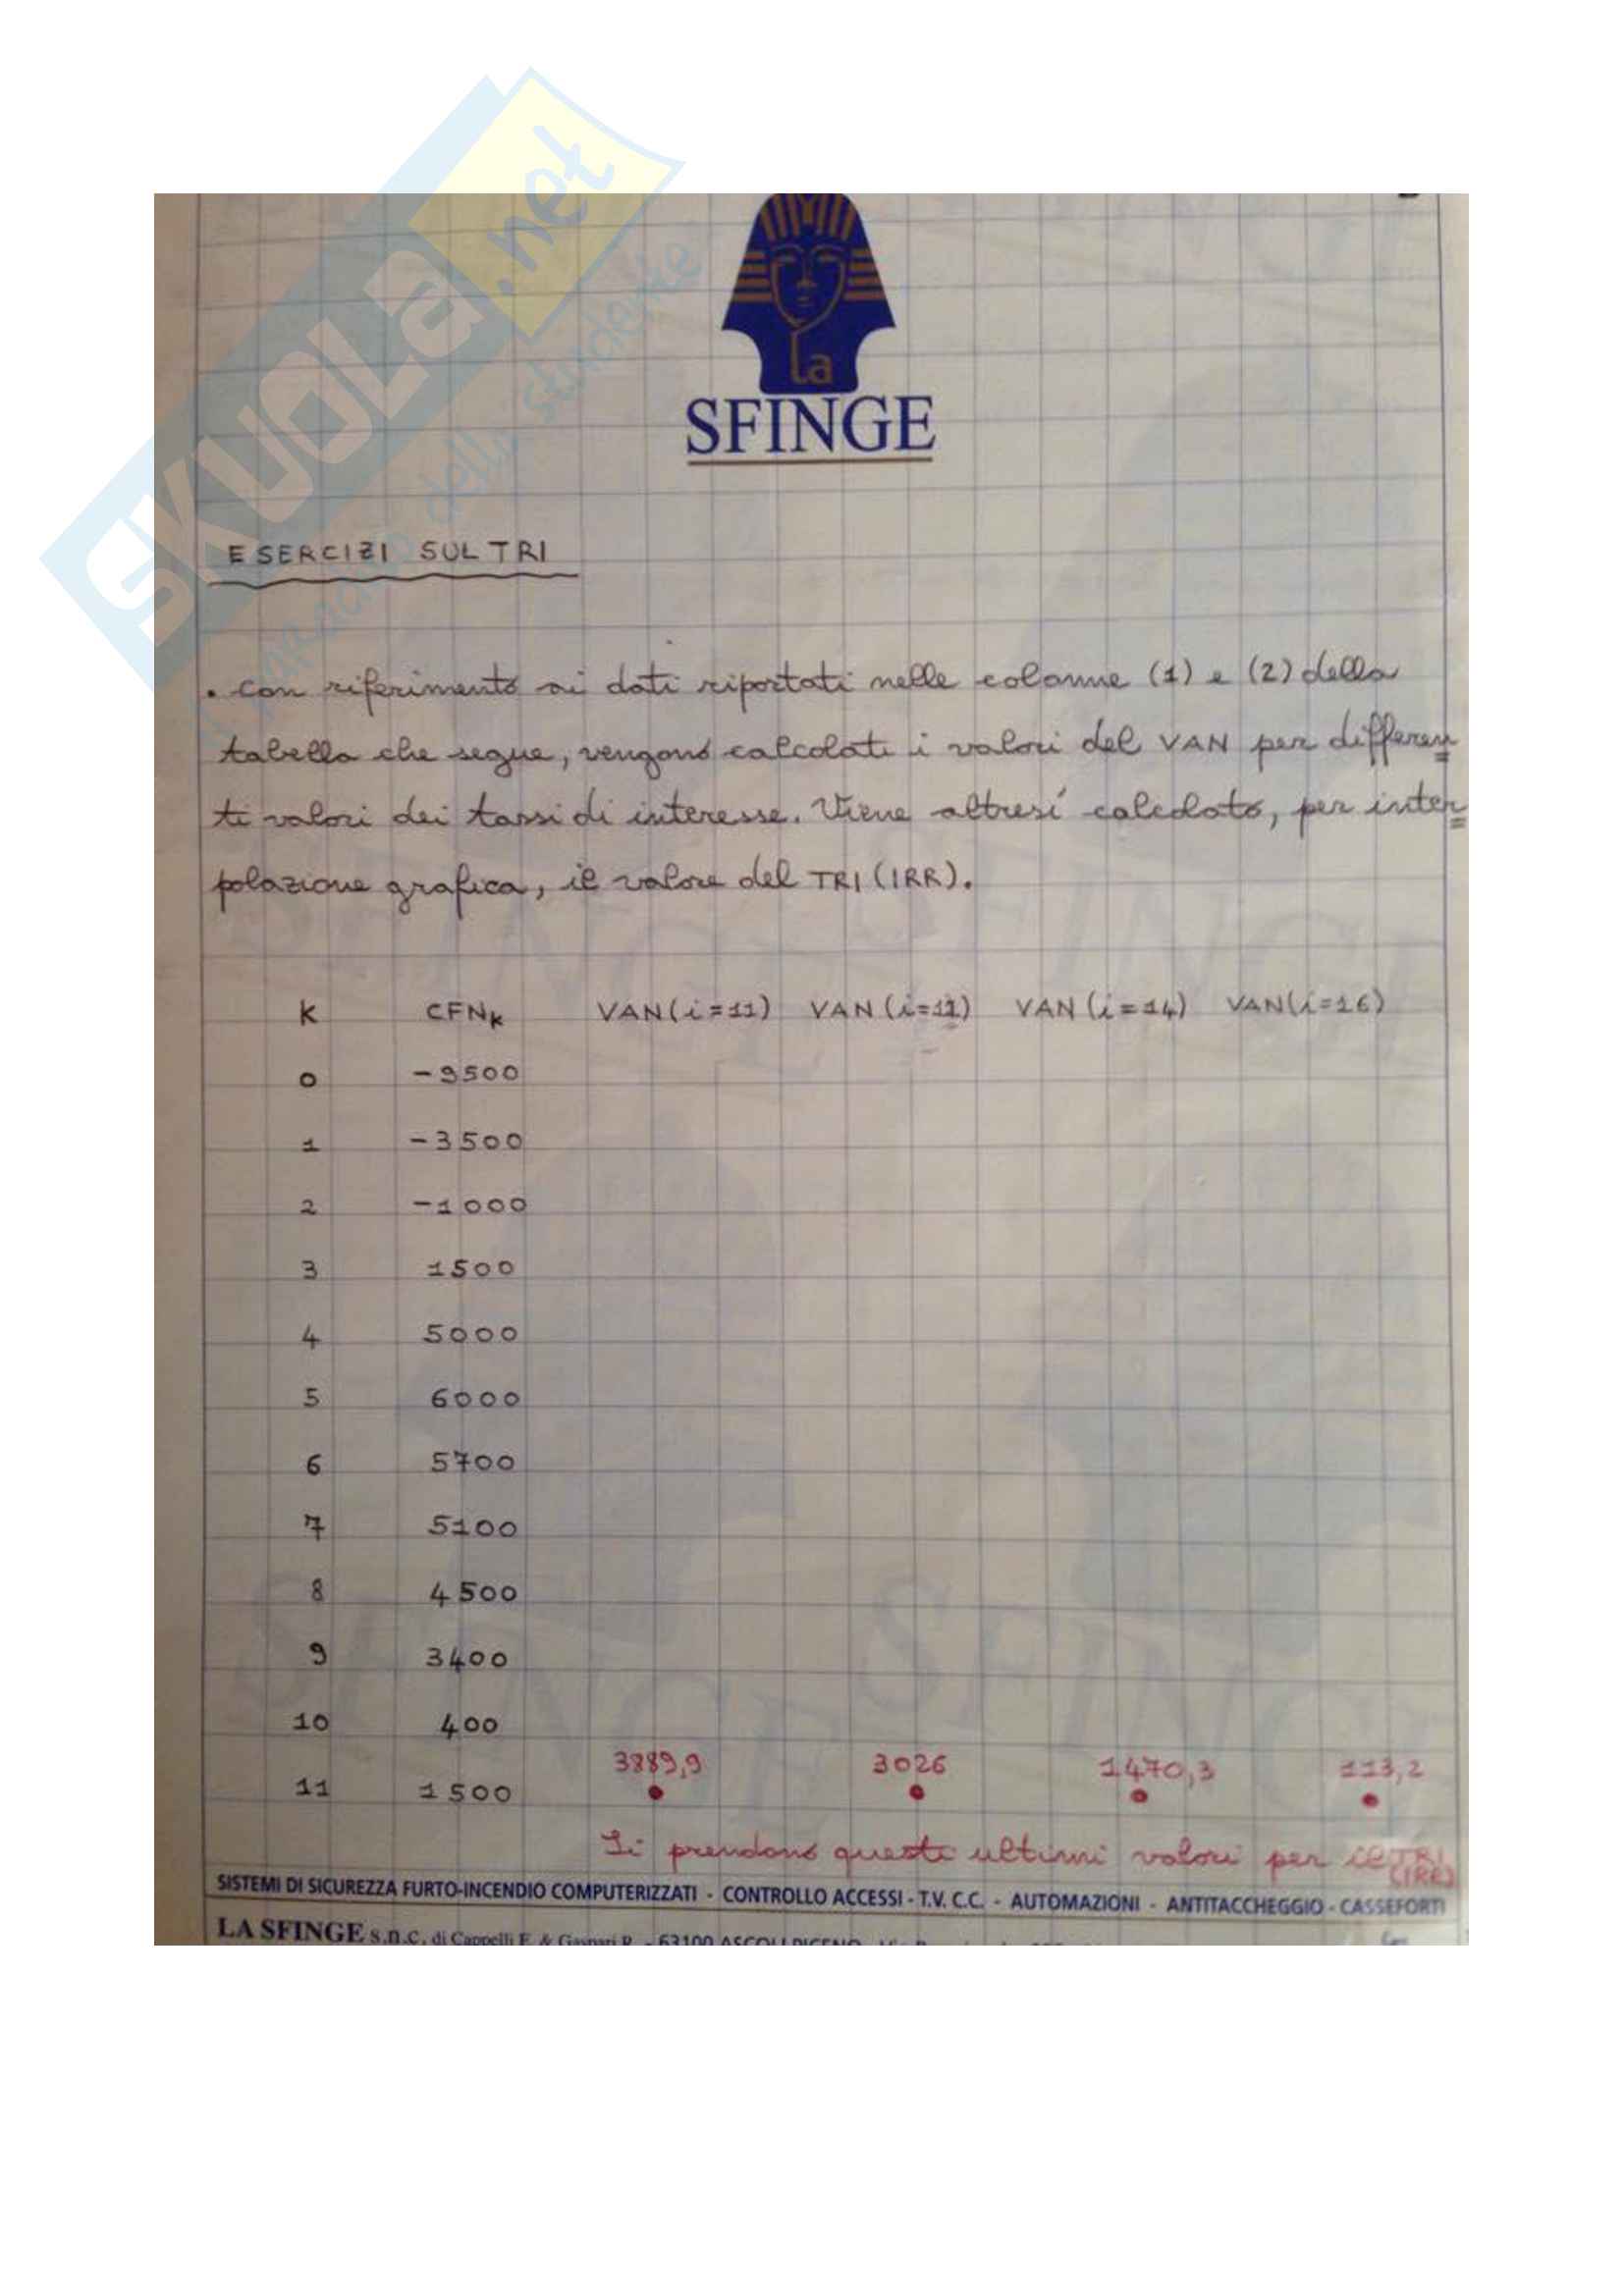 SKUOLA.net
La
SFINGE
ESERCIZI SUL TRI
• con riferimento ai dati riportati nelle colonne (1) e (2) della
tabella che segue, vengono calcolati i valori del VAN per differen=
ti valori dei tassi di interesse. Viene altresí calcolato, per inter=
polazione grafica, il valore del TRI (IRR).
K CFNk VAN(i=11) VAN(i=12) VAN(i=14) VAN(i=16)
0 -9500
1 -3500
2 -1000
3 1500
4 5000
5 6000
6 5700
7 5100
8 4500
9 3400
10 400
3889,9 3026 1470,3 113,2
11 1500
Si prendono questi ultimi valori per il TRI
(IRR)
SISTEMI DI SICUREZZA FURTO-INCENDIO COMPUTERIZZATI - CONTROLLO ACCESSI - T.V. C.C. - AUTOMAZIONI - ANTITACCHEGGIO - CASSEFORTI
LA SFINGE s.n.c. di Cappelli F. & Gaspari R. - 63100 ASCOLI PICENO